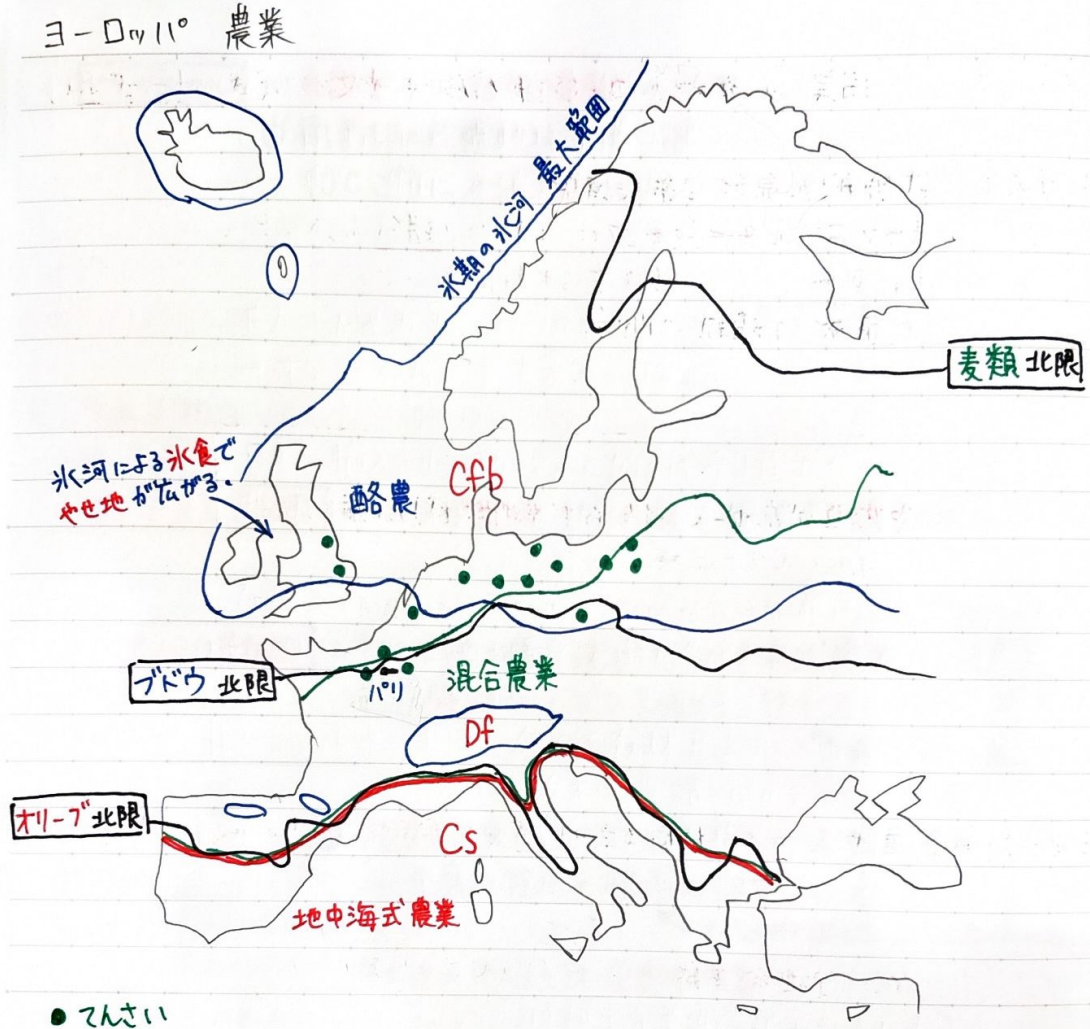 ヨーロッパ 農業
氷期の氷河 最大範囲
麦類 北限
氷河による氷食で
やせ地が広がる。
酪農
Cfb
ブドウ 北限
パリ
混合農業
Df
オリーブ 北限
Cs
地中海式農業
● てんさい